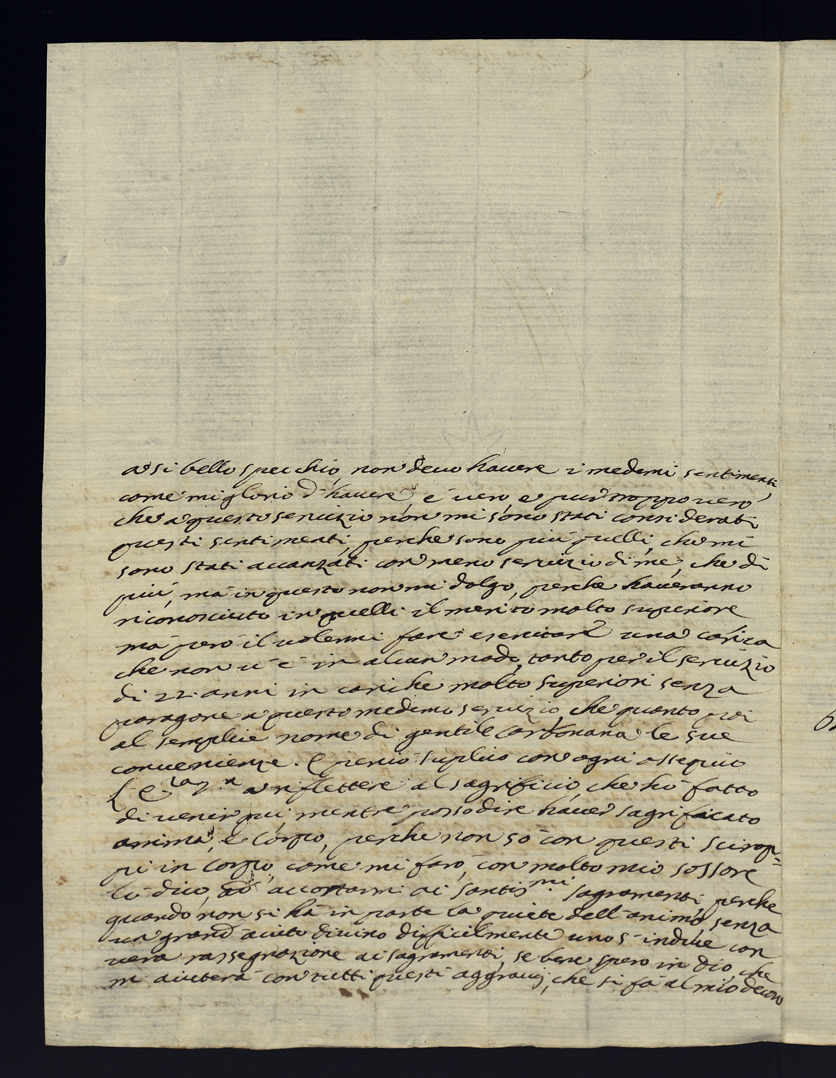 a si bello specchio non devo havere i medemi sentimenti
come mi glorio d'havere, è vero e pur troppo vero
che a questo servizio non mi sono stati considerati
questi sentimenti, perche sono più quelli, che mi
sono stati avanzati con meno servizio di me, che di
più, mà in questo non mi dolgo, perche haveranno
riconosciuto in quelli il merito molto superiore
ma però il volermi fare esercitare una carica
che non vi è in alcun modo, tanto per il servizio
di 22 anni in cariche molto superiori senza
paragone a questo medemo servizio che quanto poi
al semplice nome di gentile le sue
convenienze. E perciò suplico con ogni ossequio
a riflettere al sagrificio, che hò fatto
di venir qui, mentre posso dire haver sagrificato
anima, e corpo, perche non sò con questi scirop=
pi in corpo come mi farò, con molto mio rossore
lo dico, accostarmi ai Santis.mi Sagramenti, perche
quando non si hà in parte la quiete dell'animo, senza
un grand aiuto divino difficilmente uno s'induce con
vera rassegnazione ai sagramenti, se bene spero in Dio, che
m'aiuterà con tutti questi aggravij, che si fà al mio decoro